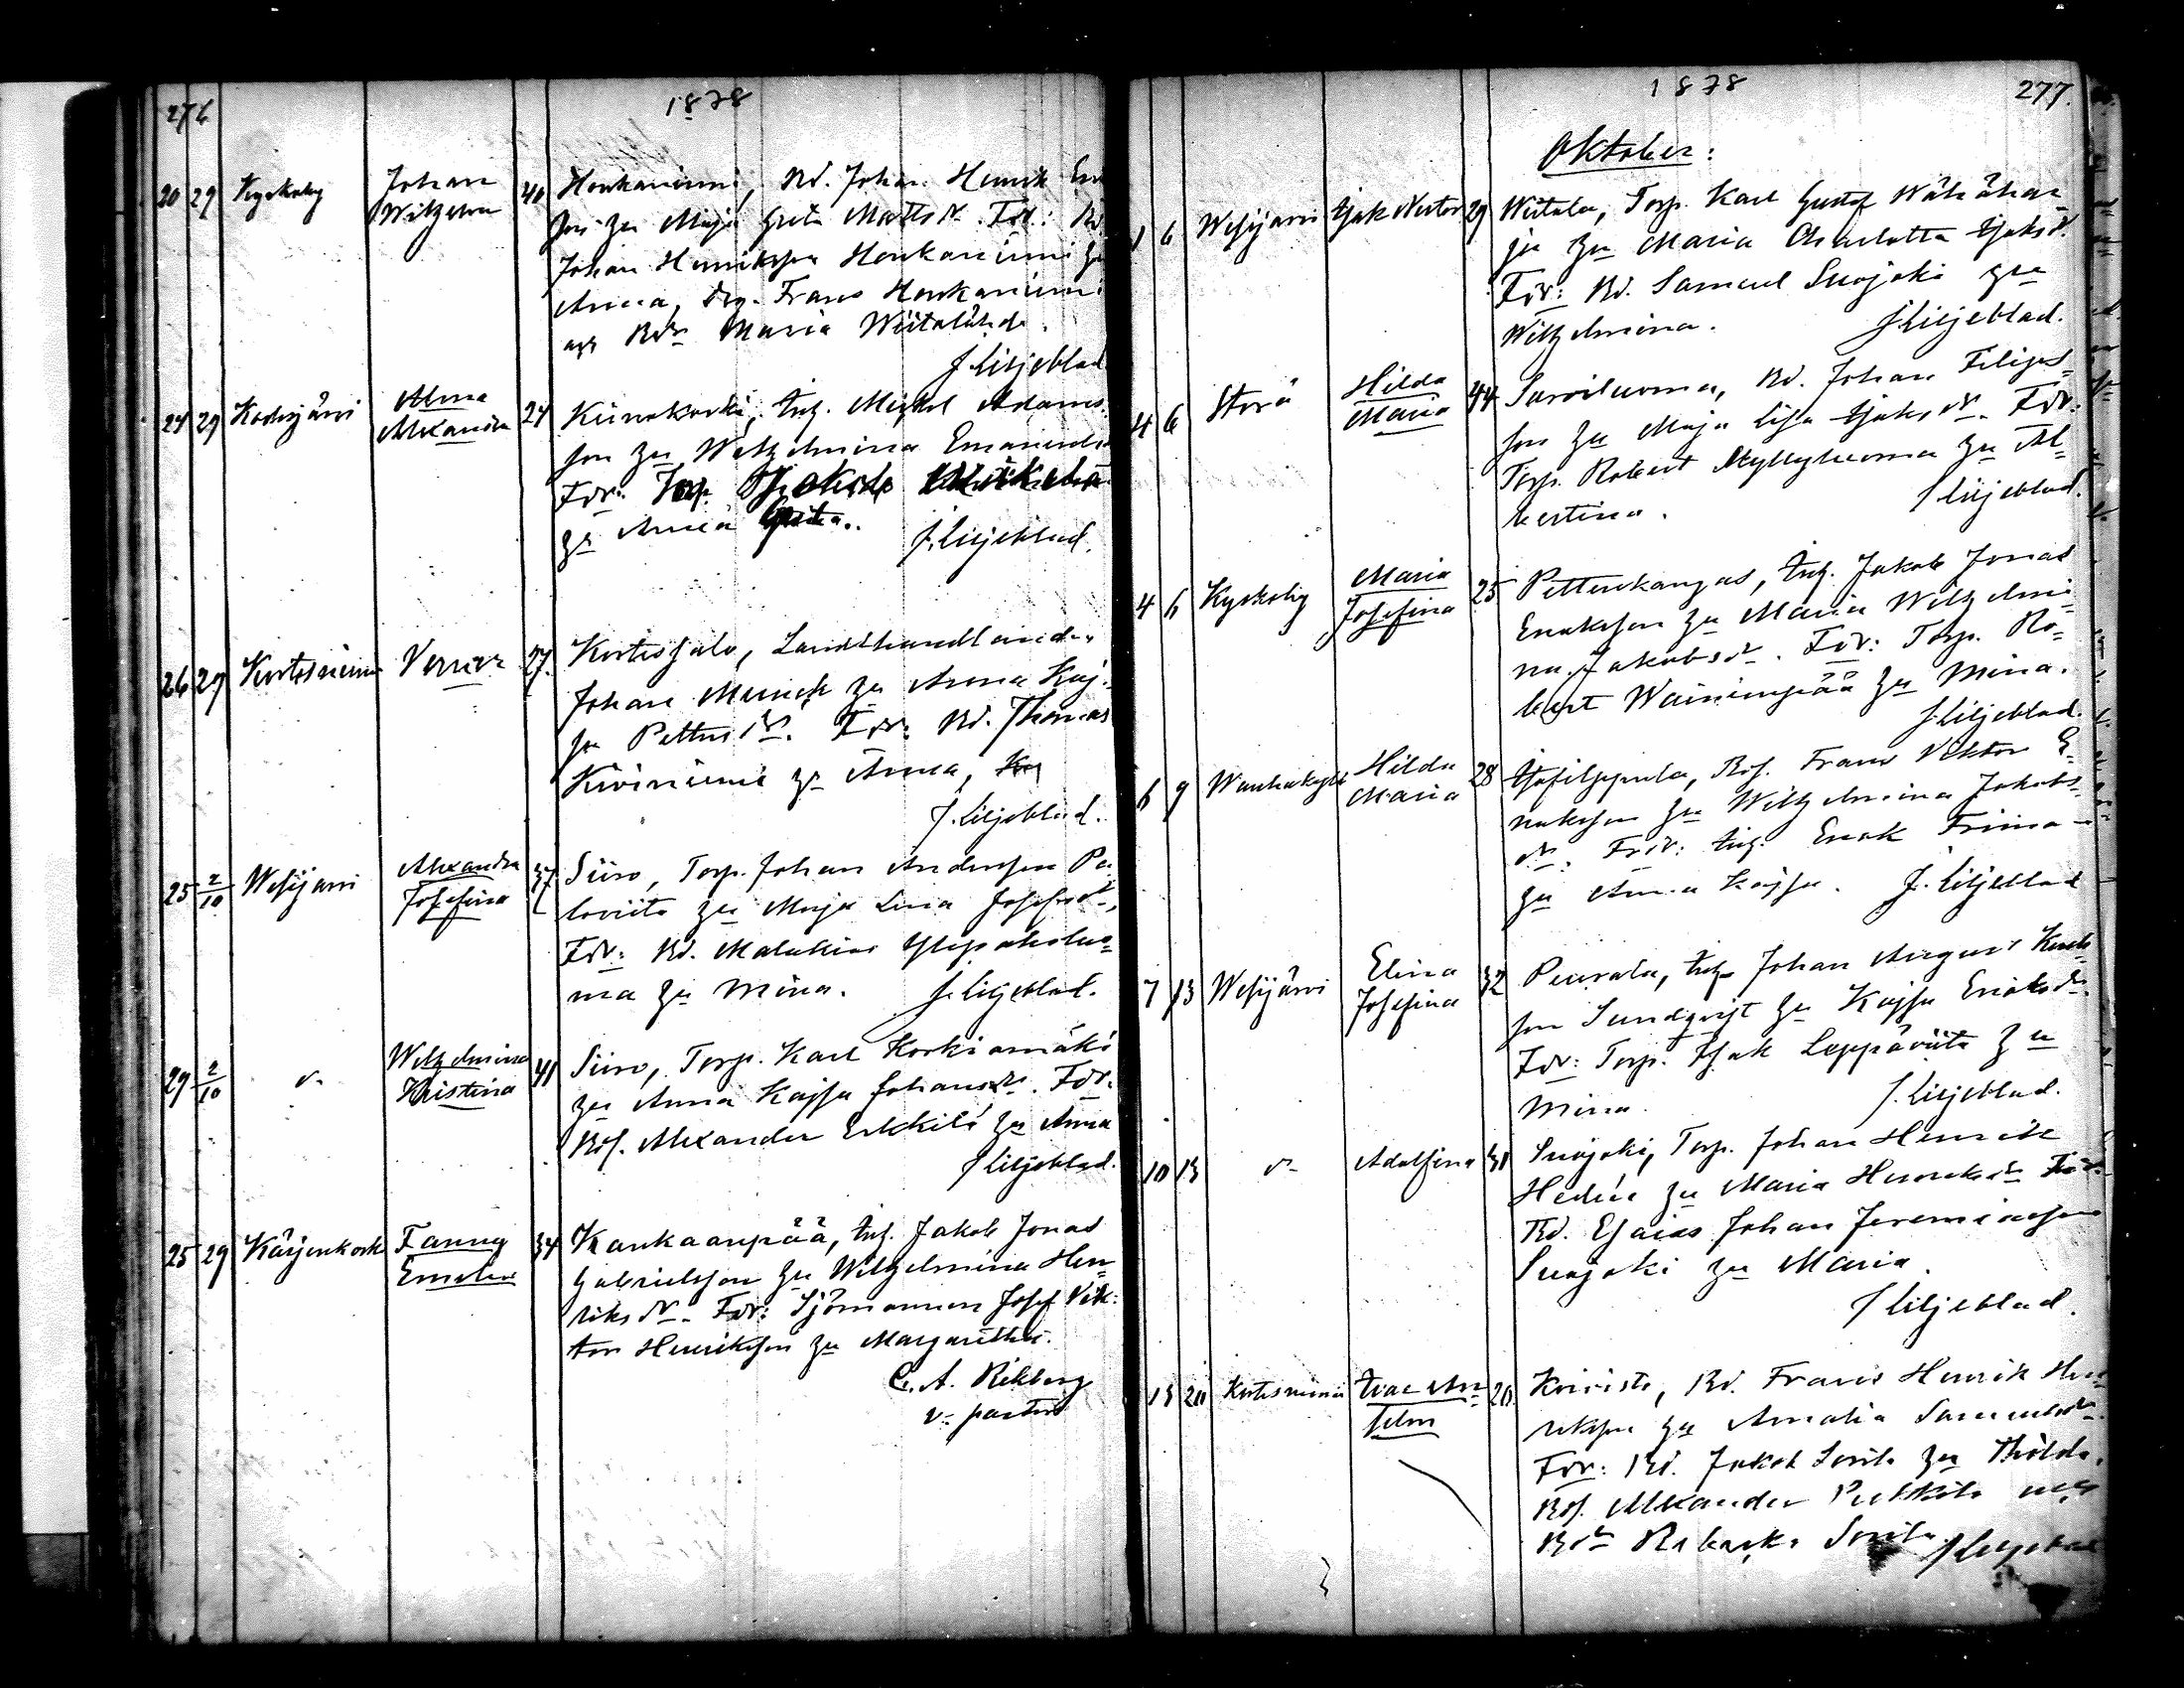 276
1878
20 29 Kyrkoby Johan Wilhelm 40 Honkaniemi, Bd. Johan Henrik
son hu Maja Greta Matts dr. Fdr: Bd
Johan Henriksson Honkaniemi hu
Anna, drg. Frans Honkaniemi
och Bdr Maria Wiitalähde.
J. Liljeblad
24 29 Alma Alexandra 24 Adams-
son hu Wilhelmina Emanuels
Fdr: Torp.
hu Anna Greta.
J. Liljeblad.
26 29 Kortesniemi Verner 27. Kortesjalo, Landthandlande
Johan Munck hu Anna Kaj-
sa Petters dr. Fdr: Bd. Thomas
Kiviniemi hu Anna,
J. Liljeblad.
25 2/10 Wesijärvi Alexandra Josefina 37 Siiro, Torp. Johan Andersson Pa
loviita hu Maja Lena Josefs dr,
Fdr: Bd. Malakias
ma hu Mina. J. Liljeblad.
29 2/10 Wilhelmina Kristina 41 Siiro, Torp. Karl Korkiamäki
hu Anna Kajsa Johans dr. Fdr:
Bos. Alexander Erkkilä hu Anna
J Liljeblad.
25 29 Kärjenkoski Fanny Emelie 34 Kankaanpää, Inh. Jakob Jonas
Gabrielsson hu Wilhelmina Hen-
riks dr. Fdr: Sjömannen Josef Vik-
tor Henriksson hu Margaretha.
C. A. Rikberg
v. pastor
1878
277.
Oktober:
1 6 Wesijärvi Isak Nestor 29 Wiitala, Torp. Karl Gustaf Wähähar-
ju hu Maria Charlotta Isaks d.
Fdr: Bd. Samuel Suojoki hu
Wilhelmina. J Liljeblad.
4 6 Storå Hilda Maria 44 Sarviluoma, Bd. Johan Filips-
son hu Maja Lisa Isaks dr. Fdr:
Torp. Robert Myllyluoma hu Al-
bertina. J Liljeblad.
4 6 Kyrkoby Maria Josefina 25 Pettenkangas, Inh. Jakob Jonas
Enoksson hu Maria Wilhelmi-
na Jakobs dr. Fdr: Torp. Ro-
bert Wainionpää hu Mina.
J. Liljeblad.
6 9 Wanhakylä Hilda Maria 28 Isofilppula, Bos. Frans Viktor E-
noksson hu Wilhelmina Jakobs-
dr. Fdr: Inh. Enok Friman
hu Anna Kajsa. J. Liljeblad
7 13 Wesijärvi Elina Josefina 32 Peurala, Inh Johan August Karls
son Sundqvist hu Kajsa Eriks dr.
Fdr: Torp. Isak Leppäviita hu
Mina. J. Liljeblad.
10 13 Adolfina 31 Suojoki, Torp. Johan Henrik
Hedén hu Maria Henriks dr Fdr:
Bd. Esaias Johan Jeremiasson
Suojoki hu Maria.
J Liljeblad.
15 20 Kortesniemi Ivar An-selm 20 Koivisto, Bd. Frans Henrik Hen-
riksson hu Amalia Samuels dr.
Fdr: Bd. Jakob Sorila hu Thilda.
Bos. Alexander Pulkkila och
Bdr Rebecka Sorila J Liljeblad